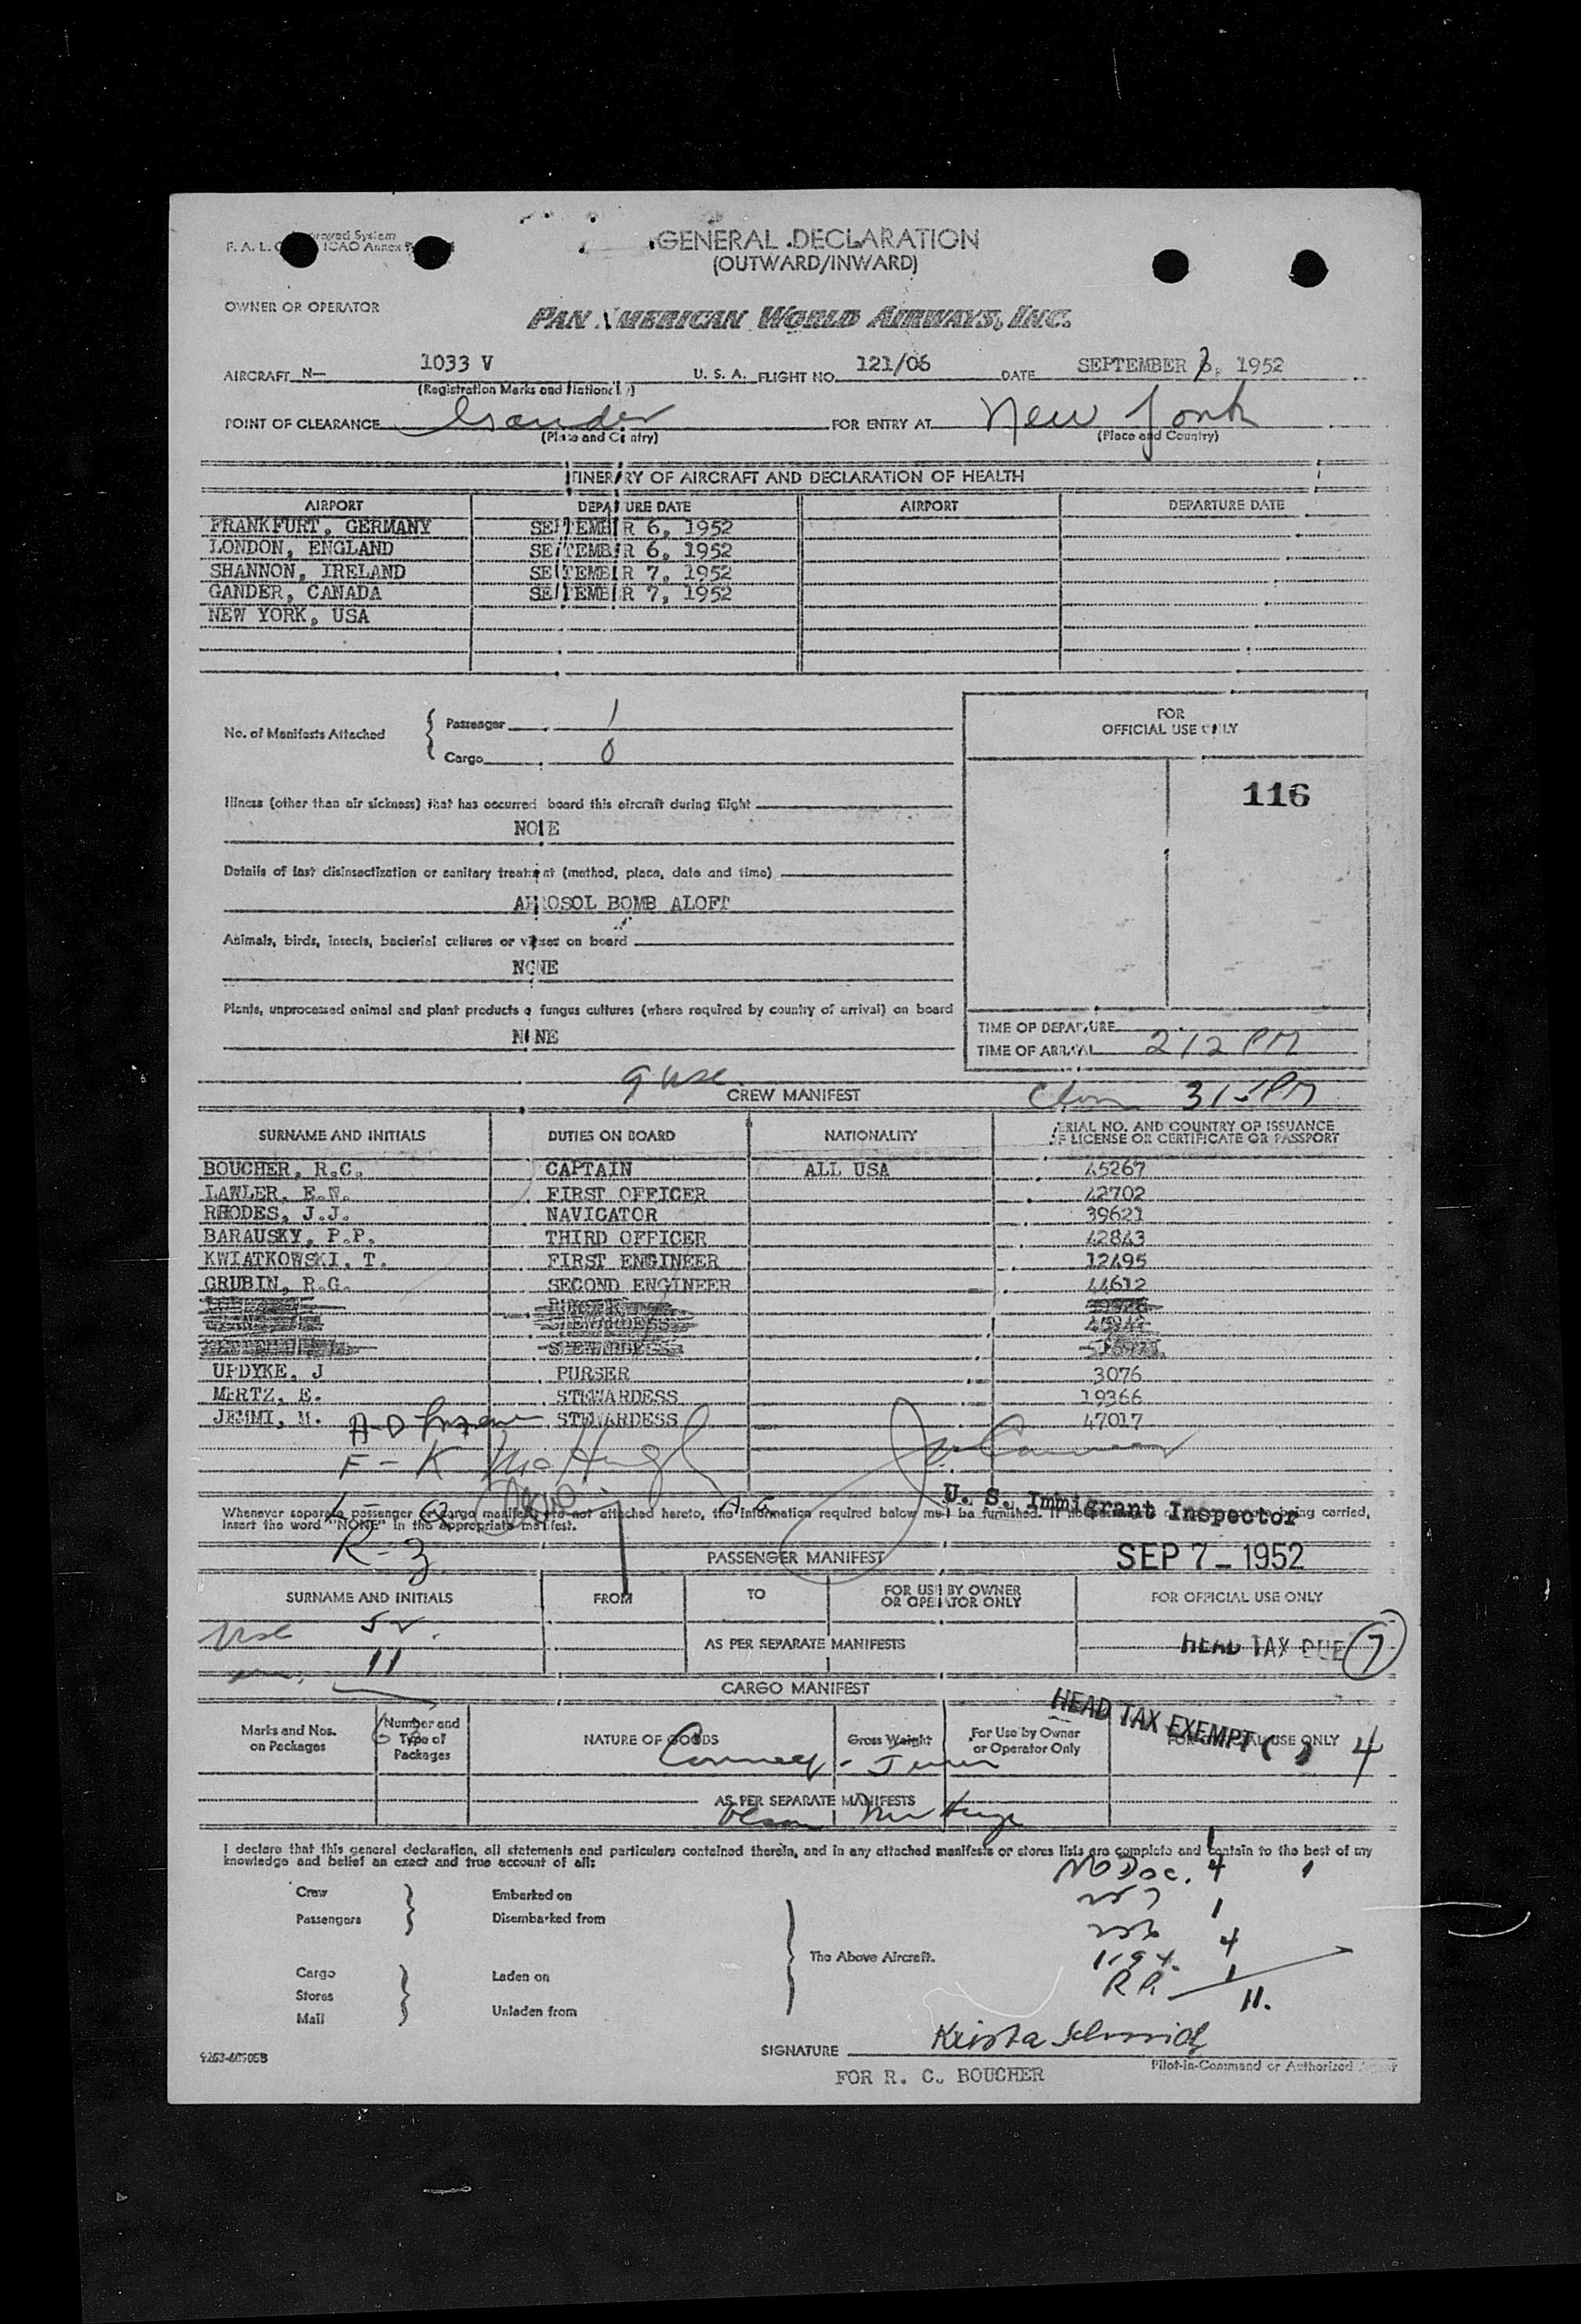 GENERAL DECLARATION
(OUTWARD/INWARD)
OWNER OR OPERATOR
PAN AMERICAN WORLD AIRWAYS, INC.
AIRCRAFT N— 1033 V U. S. A. FLIGHT NO. 121/06 DATE SEPTEMBER 7, 1952
(Registration Marks and Nationality)
POINT OF CLEARANCE Gander FOR ENTRY AT New York
(Place and Country) (Place and Country)
ITINERARY OF AIRCRAFT AND DECLARATION OF HEALTH
AIRPORT DEPARTURE DATE AIRPORT DEPARTURE DATE
FRANKFURT, GERMANY SEPTEMBER 6, 1952
LONDON, ENGLAND SEPTEMBER 6, 1952
SHANNON, IRELAND SEPTEMBER 7, 1952
GANDER, CANADA SEPTEMBER 7, 1952
NEW YORK, USA
No. of Manifests Attached
Passenger 1
Cargo 0
FOR
OFFICIAL USE ONLY
116
Illness (other than air sickness) that has occurred board this aircraft during flight
NONE
Details of last disinsectization or sanitary treatment (method, place, date and time)
AEROSOL BOMB ALOFT
Animals, birds, insects, bacterial cultures or viruses on board
NONE
Plants, unprocessed animal and plant products or fungus cultures (where required by country of arrival) on board
NONE
TIME OF DEPARTURE
TIME OF ARRIVAL 212 PM
9 usc
CREW MANIFEST 315 PM
SURNAME AND INITIALS DUTIES ON BOARD NATIONALITY SERIAL NO. AND COUNTRY OF ISSUANCE
OF LICENSE OR CERTIFICATE OR PASSPORT
BOUCHER, R.C. CAPTAIN ALL USA 45267
LAWLER, E.W. FIRST OFFICER 42702
RHODES, J.J. NAVIGATOR 39621
BARAUSKY, P.P. THIRD OFFICER 42843
KWIATKOWSKI, T. FIRST ENGINEER 12495
GRUBIN, R.G. SECOND ENGINEER 44612
UPDYKE, J PURSER 3076
MERTZ, E. STEWARDESS 19366
JEMMI, M. STEWARDESS 47017
A-D
F - K McHugh
U. S. Immigrant Inspector
Whenever separate passenger or cargo manifests are not attached hereto, the information required below must be furnished. If no being carried,
insert the word "NONE" in the appropriate manifest.
R-Z
PASSENGER MANIFEST
SEP 7 - 1952
SURNAME AND INITIALS FROM TO FOR USE BY OWNER
OR OPERATOR ONLY FOR OFFICIAL USE ONLY
Usc 52
AS PER SEPARATE MANIFESTS HEAD TAX DUE 7
11
CARGO MANIFEST
HEAD TAX EXEMPT ( ) 4
Marks and Nos.
on Packages
Number and
Type of
Packages
NATURE OF GOODS Gross Weight For Use by Owner
or Operator Only FOR OFFICIAL USE ONLY
AS PER SEPARATE MANIFESTS
I declare that this general declaration, all statements and particulars contained therein, and in any attached manifests or stores lists are complete and contain to the best of my
knowledge and belief an exact and true account of all:
No Doc. 4 1
Crew Embarked on
Passengers Disembarked from
The Above Aircraft.
Cargo Laden on
Stores
Mail Unladen from
11.
SIGNATURE Krista Schmidt
Pilot-in-Command or Authorized Agent
FOR R. C. BOUCHER